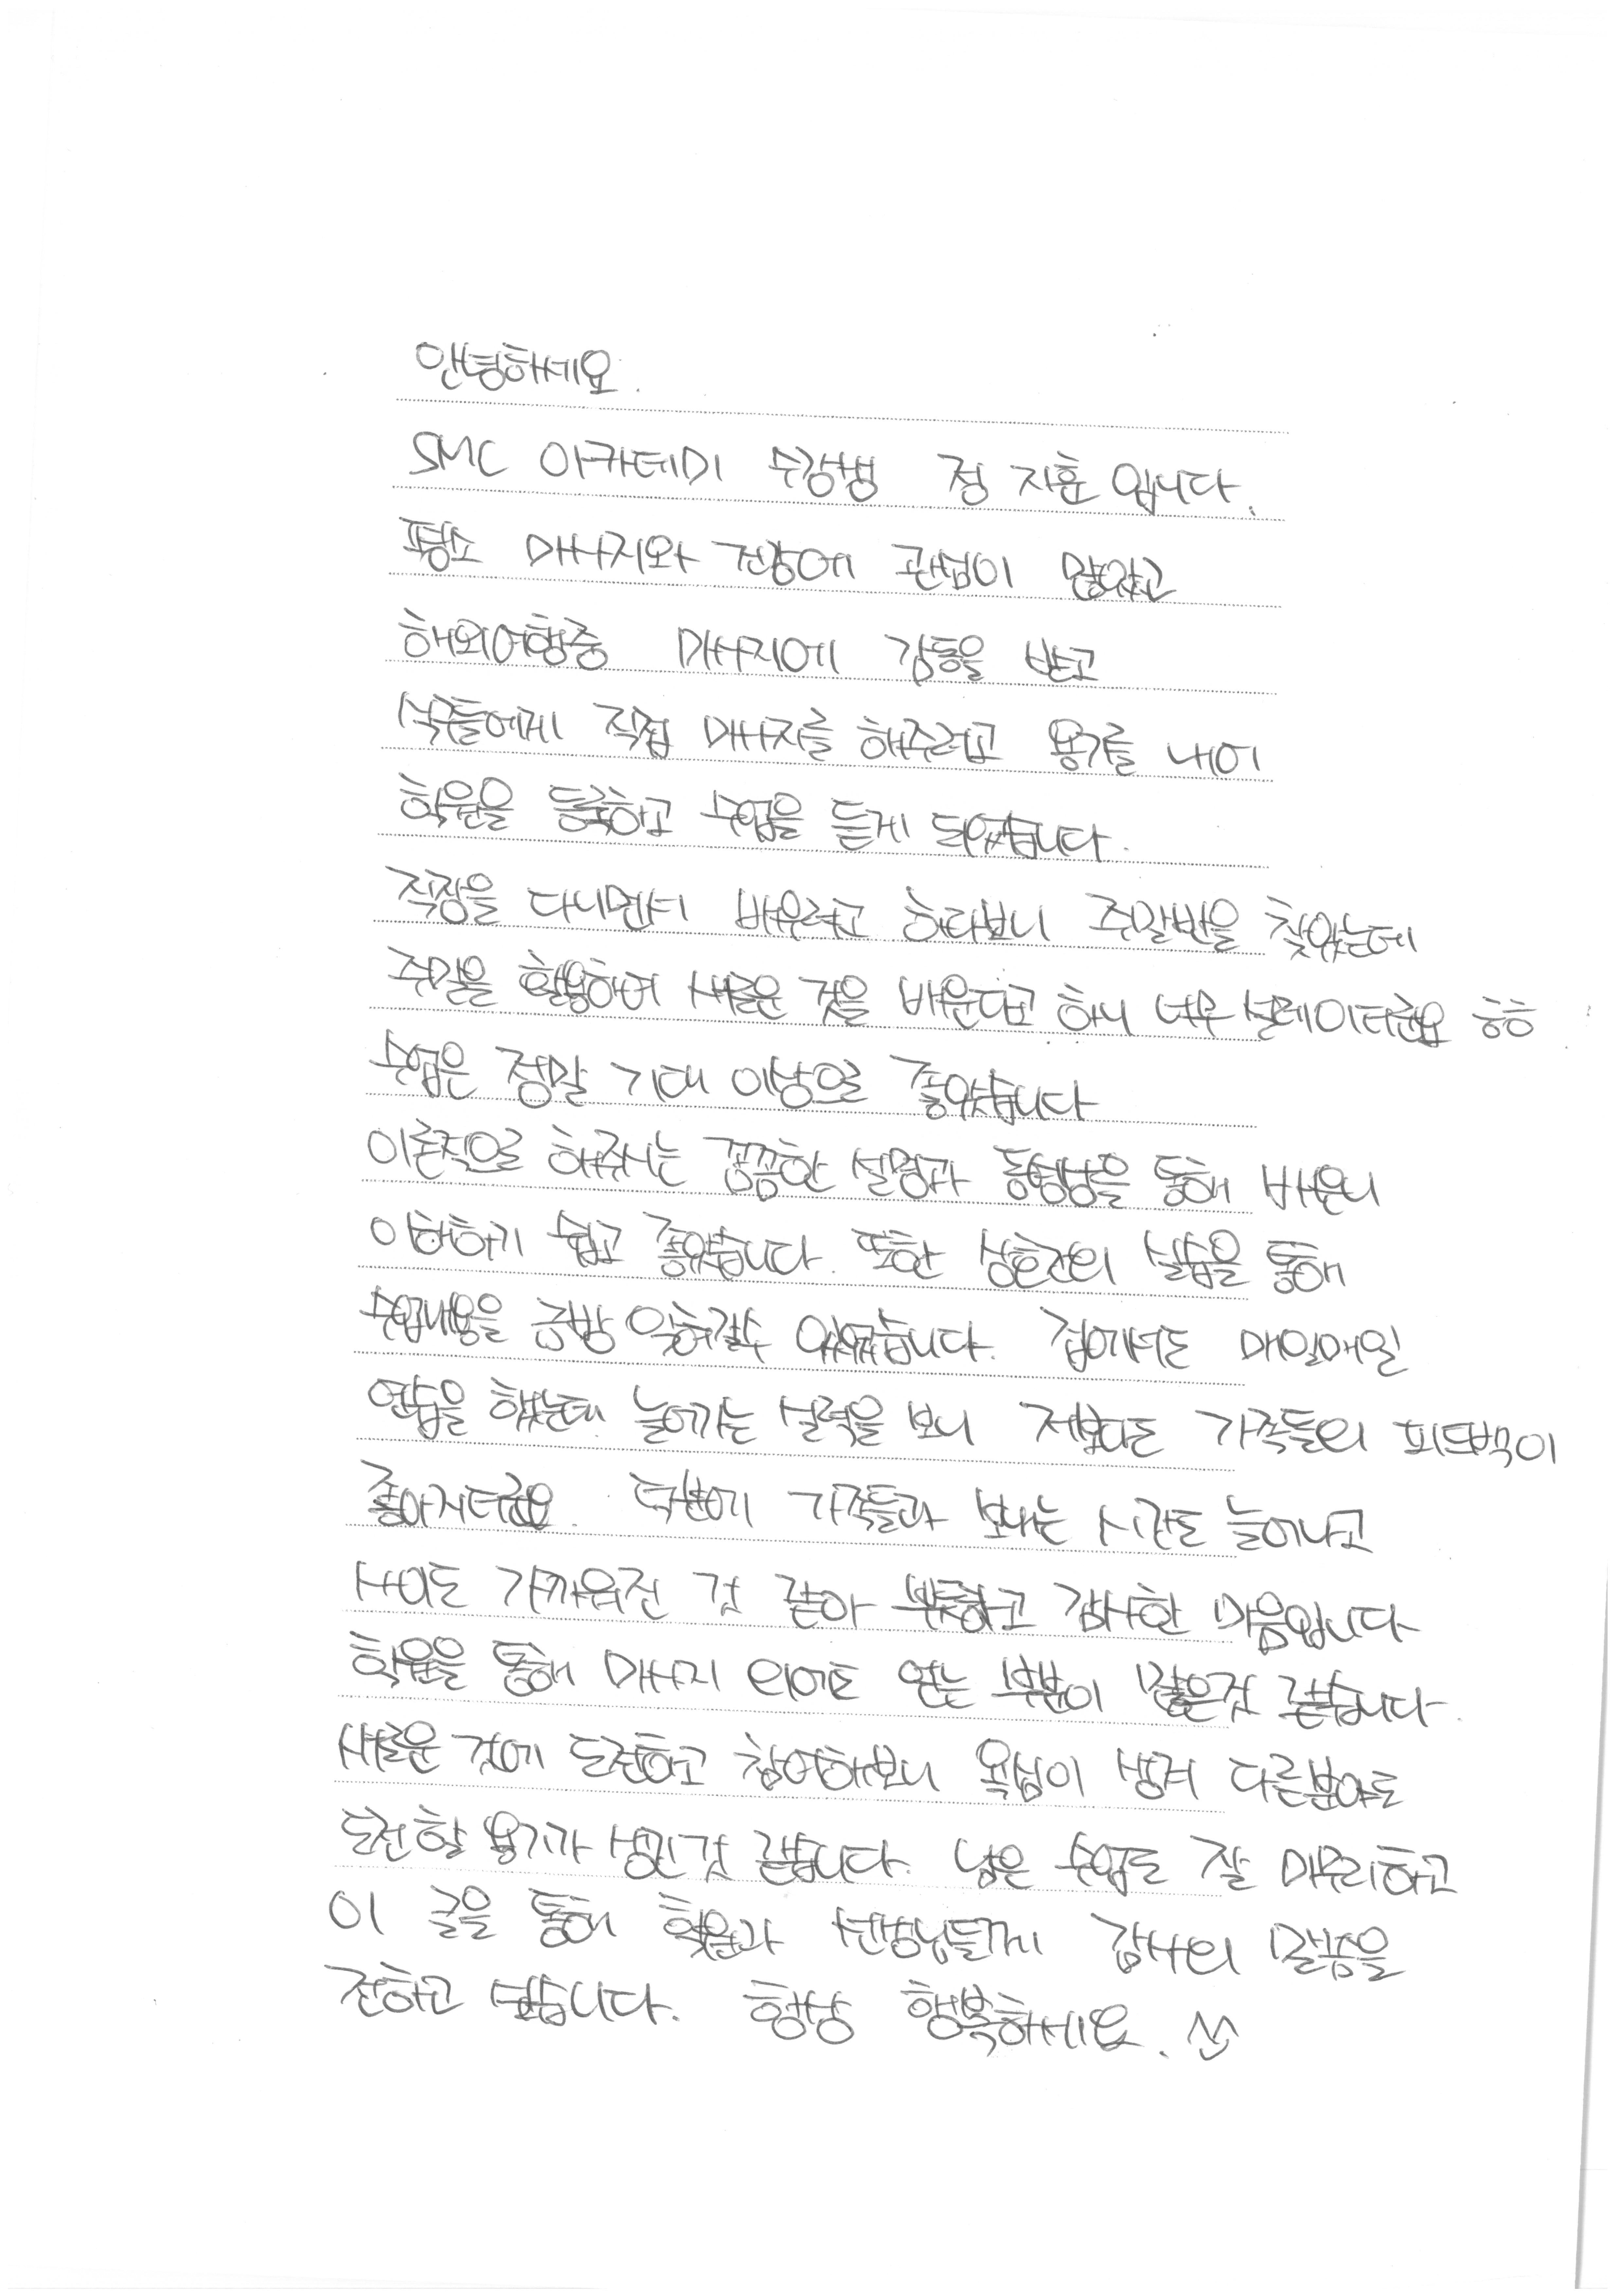 안녕하세요.
SMC 아카데미 수강생 정 지훈 입니다.
평소 마사지와 건강에 관심이 많았고
해외여행중 마사지에 감동을 받고
식구들에게 직접 마사지를 해주려고 용기를 내어
학원을 등록하고 수업을 듣게 되었습니다.
직장을 다니면서 배우려고 하다보니 주말반을 찾았는데
주말을 활용하여 새로운 것을 배운다고 하니 너무 설레이더라구요 ㅎㅎ
수업은 정말 기대 이상으로 좋았습니다
이론적으로 해주시는 꼼꼼한 설명과 동영상을 통해 배우니
이해하기 쉽고 좋았습니다. 또한 상호간의 실습을 통해
수업내용을 금방 익혀갈수 있었습니다. 집에서도 매일매일
연습을 했는데 늘어가는 실력을 보니 저보다도 가족들의 피드백이
좋아지더라구요. 덕분에 가족들과 보내는 시간도 늘어나고
사이도 가까워진 것 같아 뿌듯하고 감사한 마음입니다
학원을 통해 마사지 외에도 얻는 부분이 많은것 같습니다.
새로운 것에 도전하고 참여해보니 욕심이 생겨 다른분야도
도전할 용기가 생긴것 같습니다. 남은 수업도 잘 마무리하고
이 글을 통해 학원과 선생님들께 감사의 말씀을
전하고 싶습니다. 항상 행복하세요. ^^